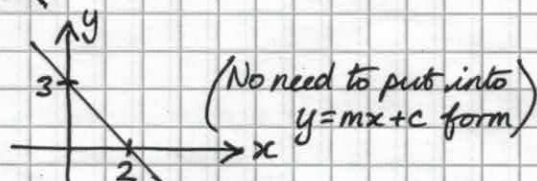 y
3
(No need to put into
y=mx+c form)
x
2